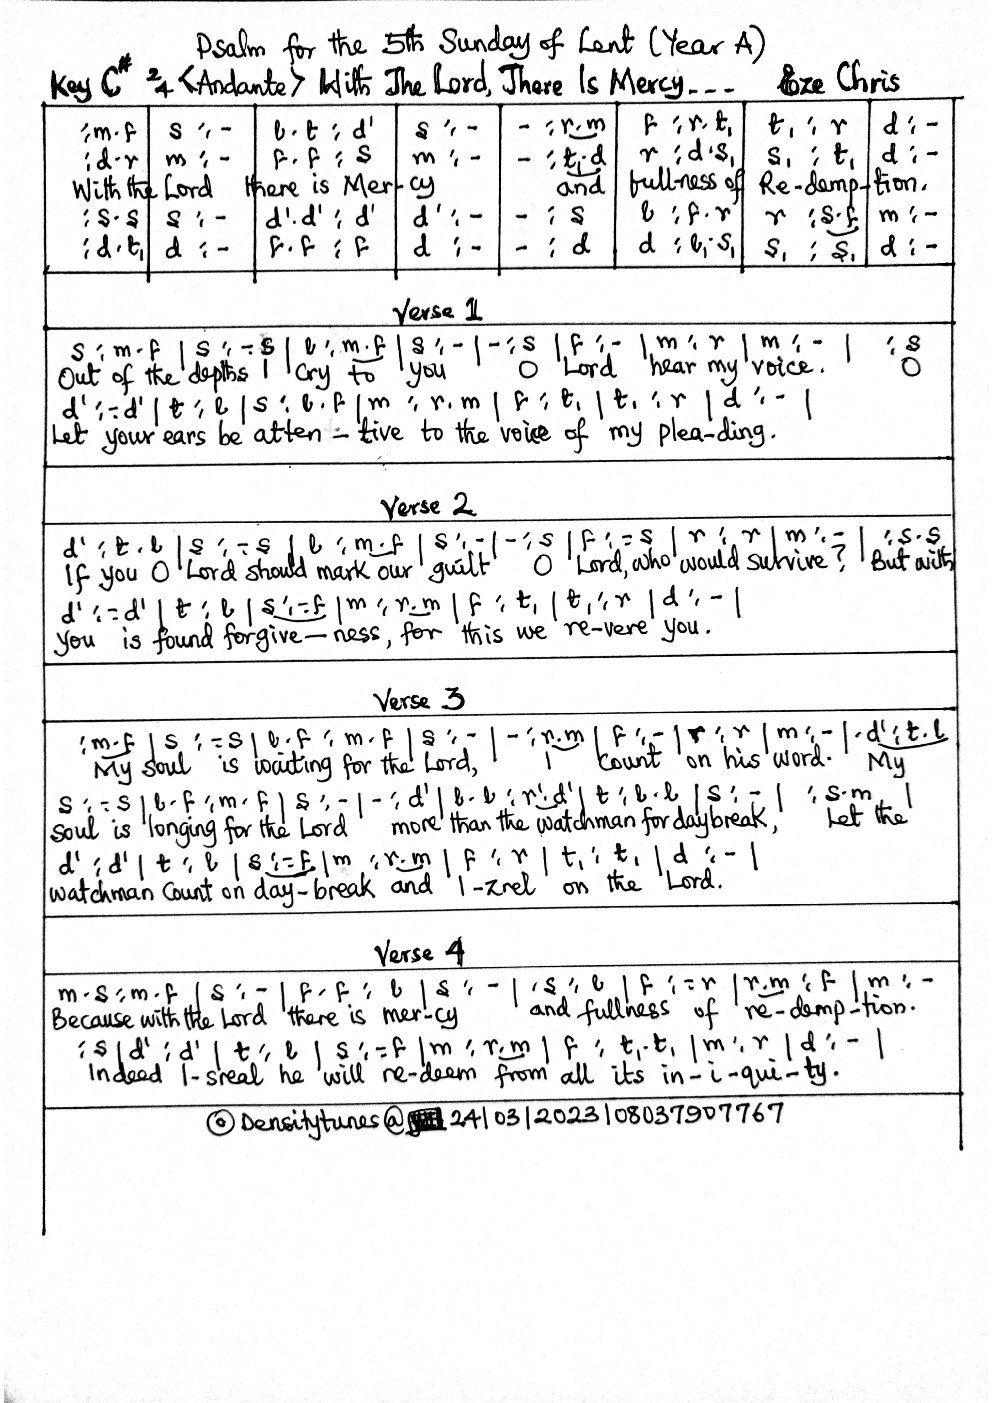 Psalm for the 5th Sunday of Lent (Year A)
Key C# 2/4 <Andante> With The Lord, There Is Mercy--- Eze Chris
:m.f | s :- | l.t :d' | s :- | - :r.m | f :r.t, | t, :r | d :-
:d.r | m :- | f.f :s | m :- | - :t,.d | r :d.s, | s, :t, | d :-
With the Lord there is Mer-cy and fullness of Re-demp-tion.
:s.s | s :- | d'.d' :d' | d' :- | - :s | l :f.r | r :s.f | m :-
:d.t, | d :- | f.f :f | d :- | - :d | d :l,.s, | s, :s, | d :-
Verse 1
s :m.f | s :-.s | l :m.f | s :- | - :s | f :- | m :r | m :- | :s
Out of the depths I cry to you O Lord hear my voice. O
d' :-.d' | t :l | s :l.f | m :r.m | f :t, | t, :r | d :- |
Let your ears be atten-tive to the voice of my plea-ding.
Verse 2
d' :t.l | s :-.s | l :m.f | s :- | - :s | f :-.s | r :r | m :- | :s.s
If you O Lord should mark our guilt O Lord, who would survive? But with
d' :-.d' | t :l | s :-.f | m :r.m | f :t, | t, :r | d :- |
you is found forgive-ness, for this we re-vere you.
Verse 3
:m.f | s :-.s | l.f :m.f | s :- | - :r.m | f :- | r :r | m :- | .d' :t.l
My soul is waiting for the Lord, I count on his word. My
s :-.s | l.f :m.f | s :- | - :d' | l.l :r'.d' | t :l.l | s :- | :s.m |
soul is longing for the Lord more than the watchman for daybreak, Let the
d' :d' | t :l | s :-.f | m :r.m | f :r | t, :t, | d :- |
watchman Count on day-break and I-zrel on the Lord.
Verse 4
m.s :m.f | s :- | f.f :l | s :- | :s :l | f :-.r | r.m :f | m :-
Because with the Lord there is mer-cy and fullness of re-demp-tion.
:s | d' :d' | t :l | s :-.f | m :r.m | f :t,.t, | m :r | d :- |
Indeed I-sreal he will re-deem from all its in-i-qui-ty.
© Densitytunes@ 24/03/2023/08037907767